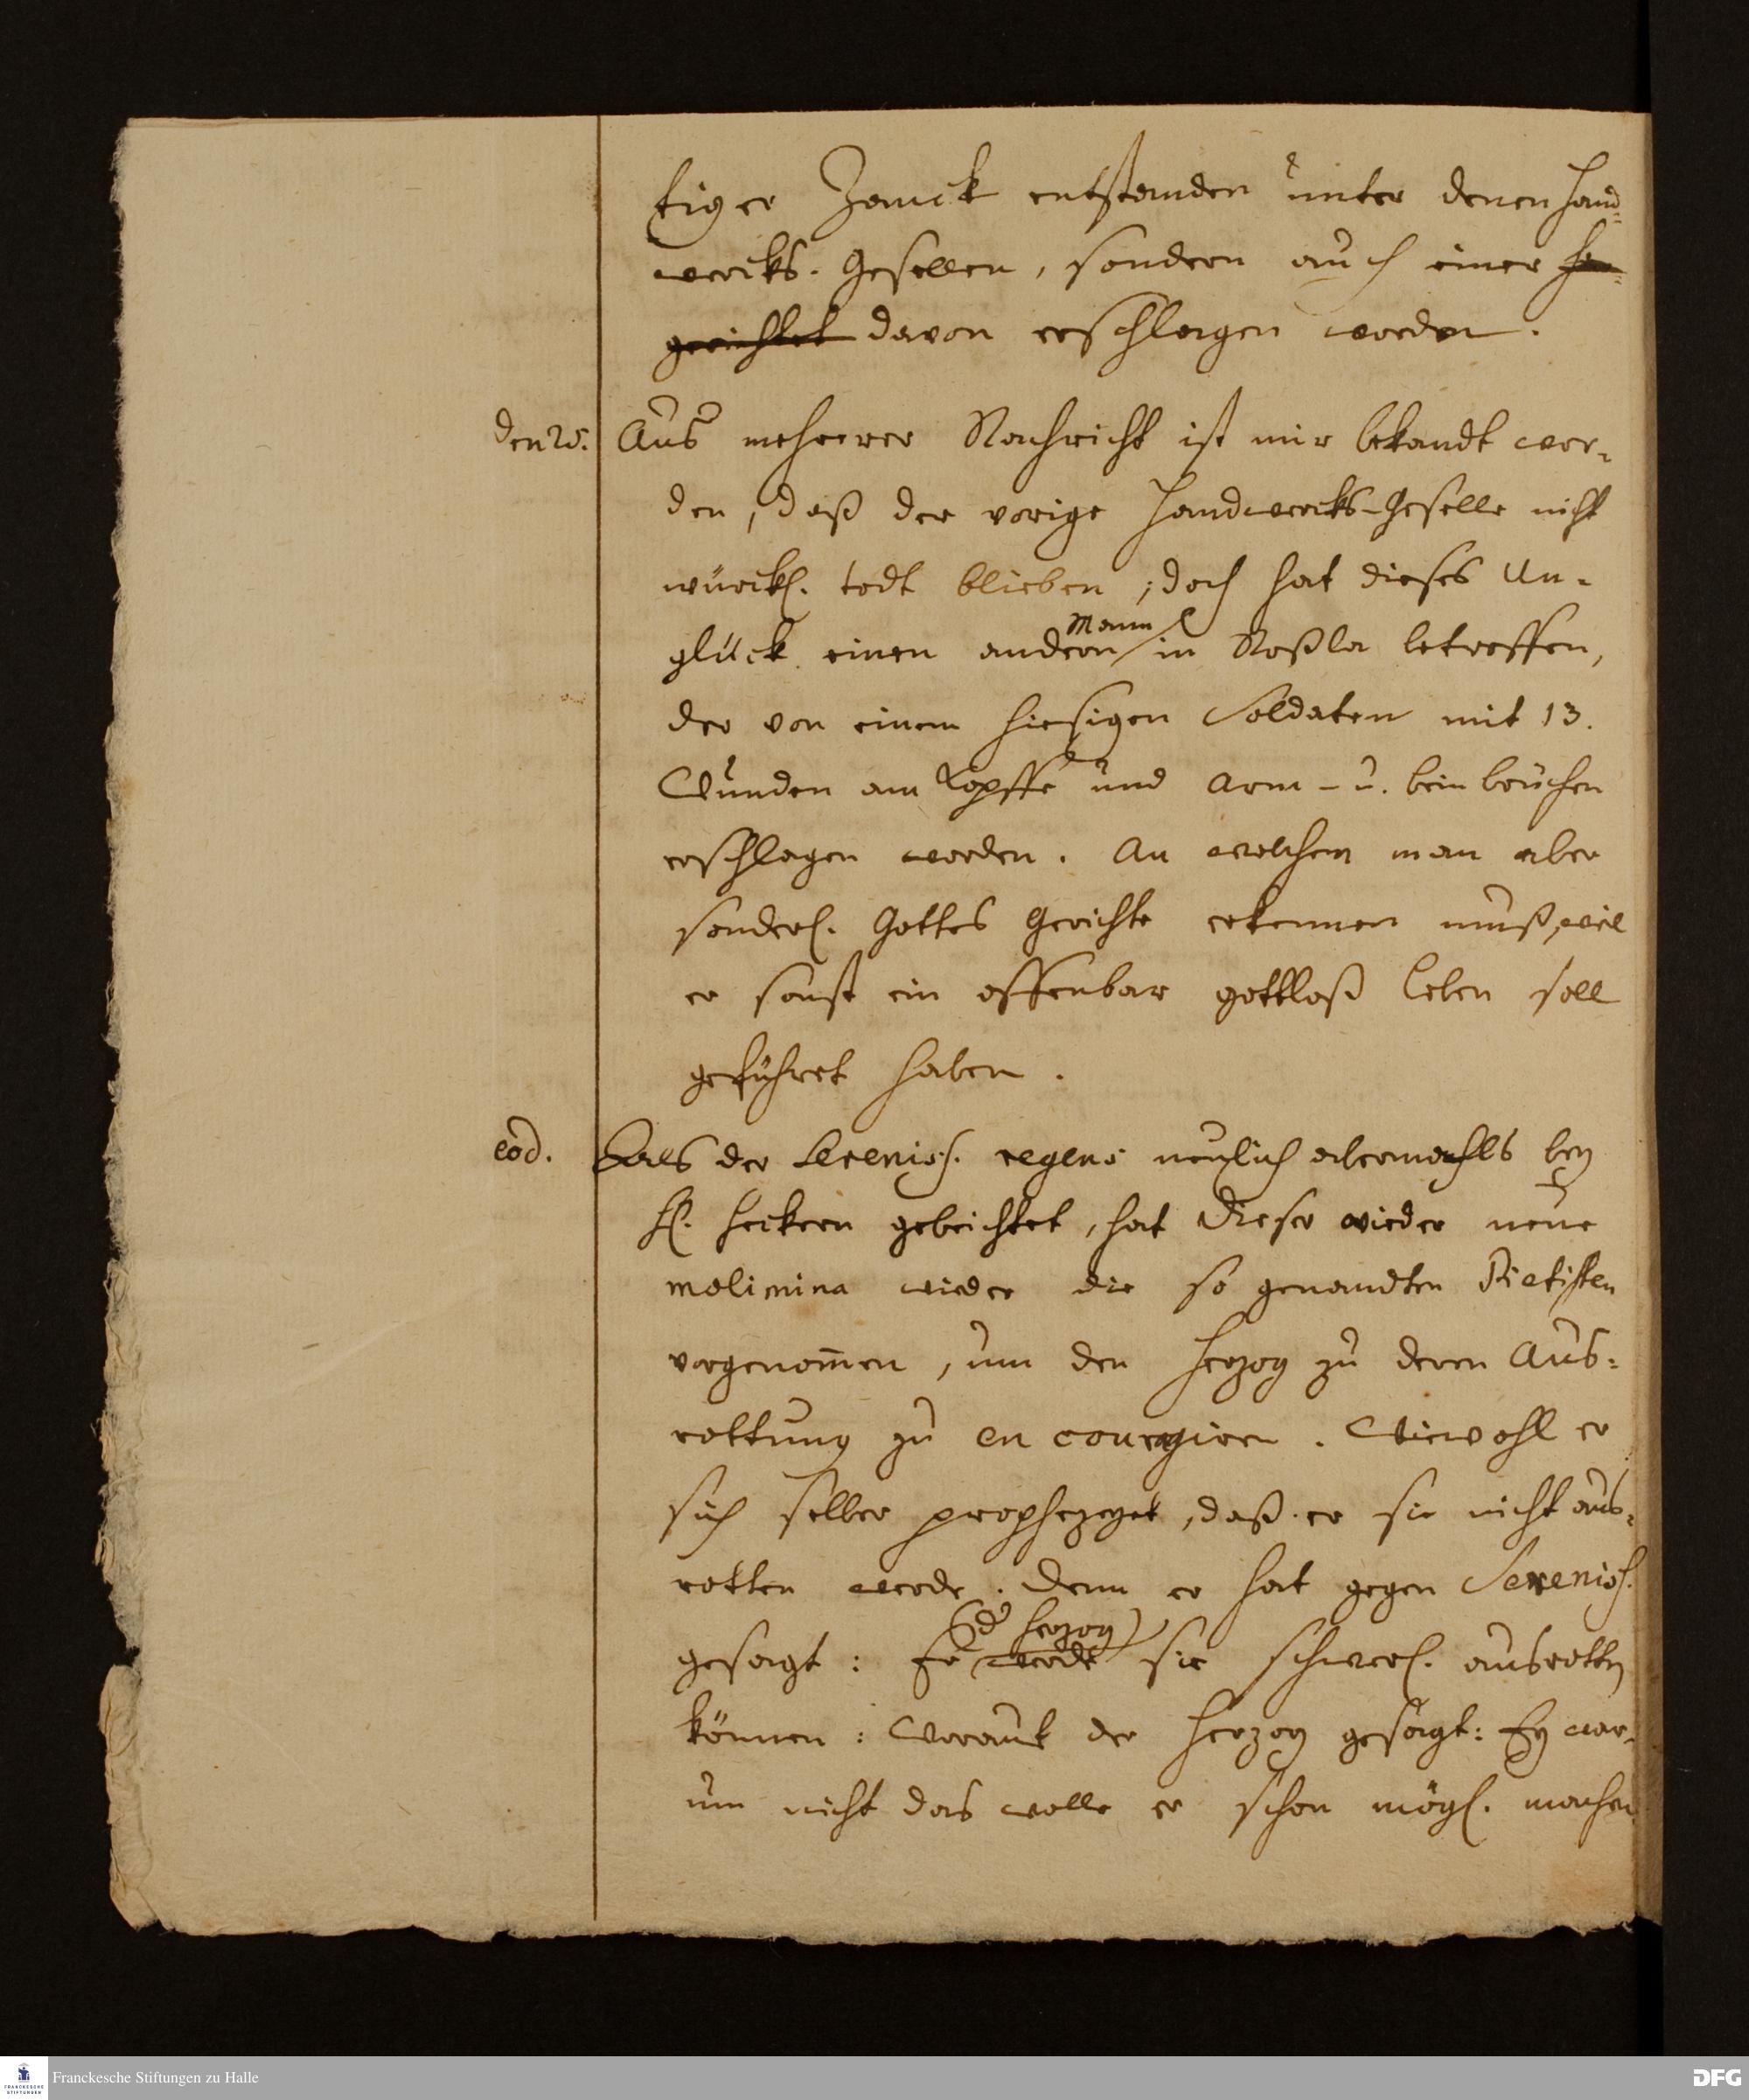 tiger Zanck entstanden unter denen Hand-
wercks-Gesellen, sondern auch einer
gerichtet davon erschlagen worden.
den 25. Aus mehrerer Nachricht ist mir bekandt wor-
den, daß der vorige Handwercks-Geselle nicht
würckl. todt blieben, doch hat dieses Un-
glück einen andern Mann in Roßla betroffen,
der von einem hiesigen Soldaten mit 13.
Wunden am Kopffe und Arm- u. beinbrüchen
erschlagen worden. An welchem man aber
sonderl. Gottes Gerichte erkennen muß, weil
er sonst ein offenbar gottloß Leben soll
geführet haben.
eod. Als der Sereniss. regens neulich abermahls bey
H. Heckern gebeichtet, hat dieser wieder neue
molimina wieder die so genandten Pietisten
vorgenom̄en, um den Herzog zu deren Aus-
rottung zu encouragiren. Wiewohl er
sich selber prophezeyet, daß er sie nicht aus-
rotten werde. Denn er hat gegen Sereniss.
gesagt: Er (d. Herzog) werde sie schwerl. ausrotten
können: Worauf der Herzog gesagt: Ey war-
um nicht das wolle er schon mögl. machen
Franckesche Stiftungen zu Halle
DFG